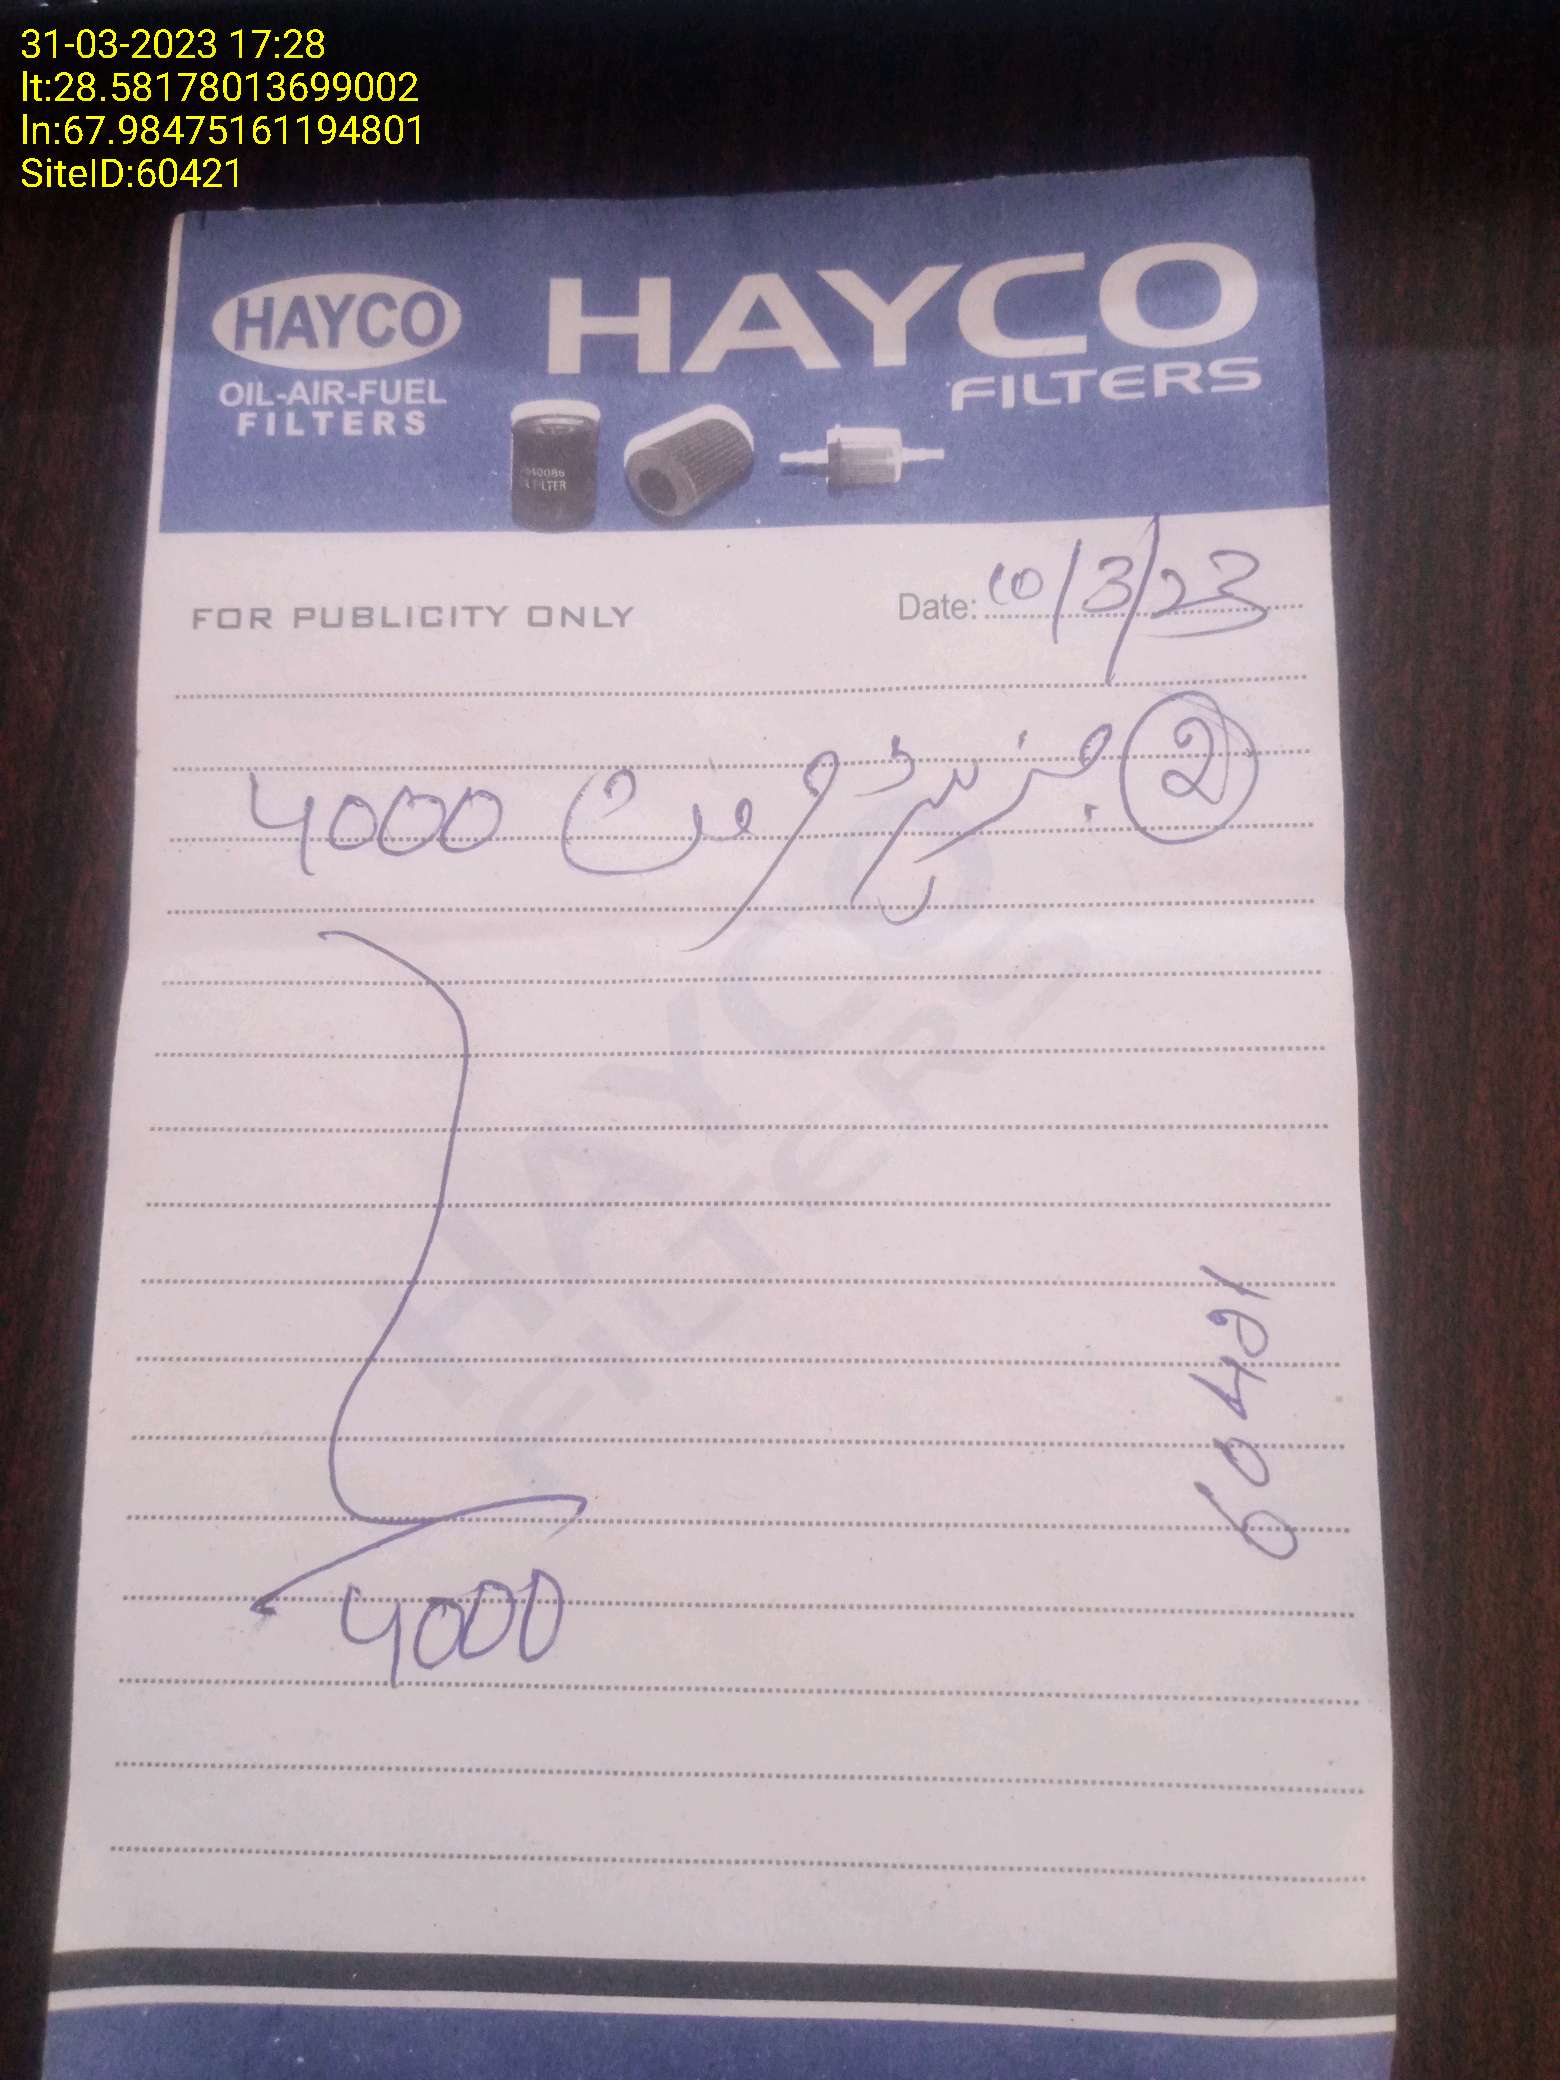 31-03-2023 17:28
lt:28.58178013699002
ln:67.98475161194801
SiteID:60421
HAYCO
OIL-AIR-FUEL
FILTERS
HAYCO
FILTERS
FOR PUBLICITY ONLY
Date: 10/3/23
2 جنریٹر 4000
4000
60421
HAYCO
FILTERS